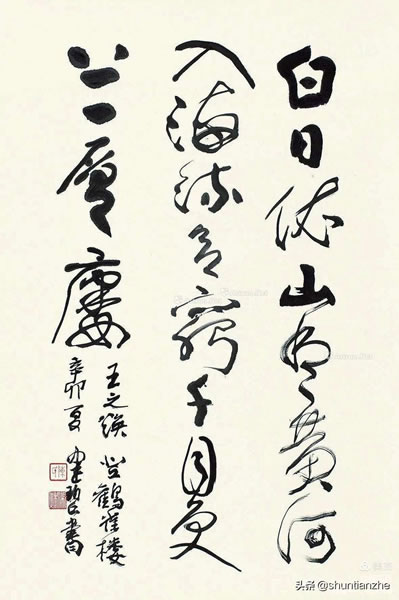 白日依山尽黄河
入海流欲窮千目更
上一層廔
王之涣 登鶴雀樓
辛卯夏 書
头条 @shuntianzhe